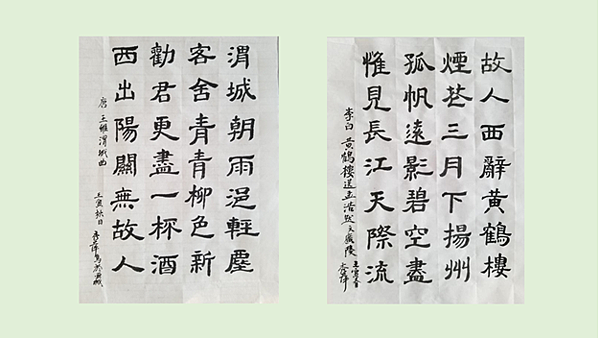 渭城朝雨浥輕塵
客舍青青柳色新
勸君更盡一杯酒
西出陽關無故人
唐 王維 渭城曲
壬寅秋日
故人西辭黃鶴樓
煙花三月下揚州
孤帆遠影碧空盡
惟見長江天際流
李白 黃鶴樓送孟浩然之廣陵
壬寅春